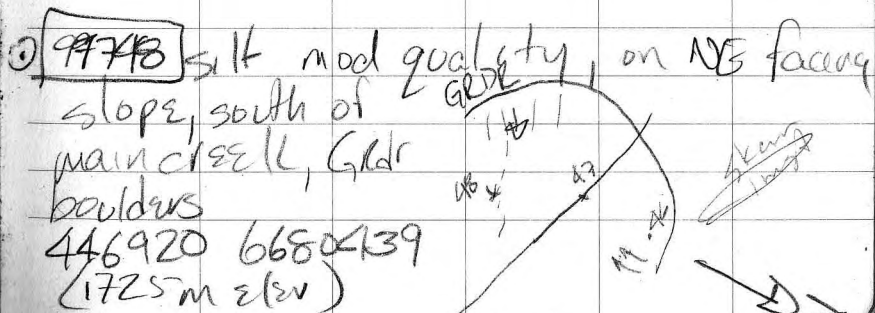 99748 silt mod quality, on NE facing
slope, south of
main creek, Grdr
boulders
446920 6680439
(1725m elev)
GRDR
48
47